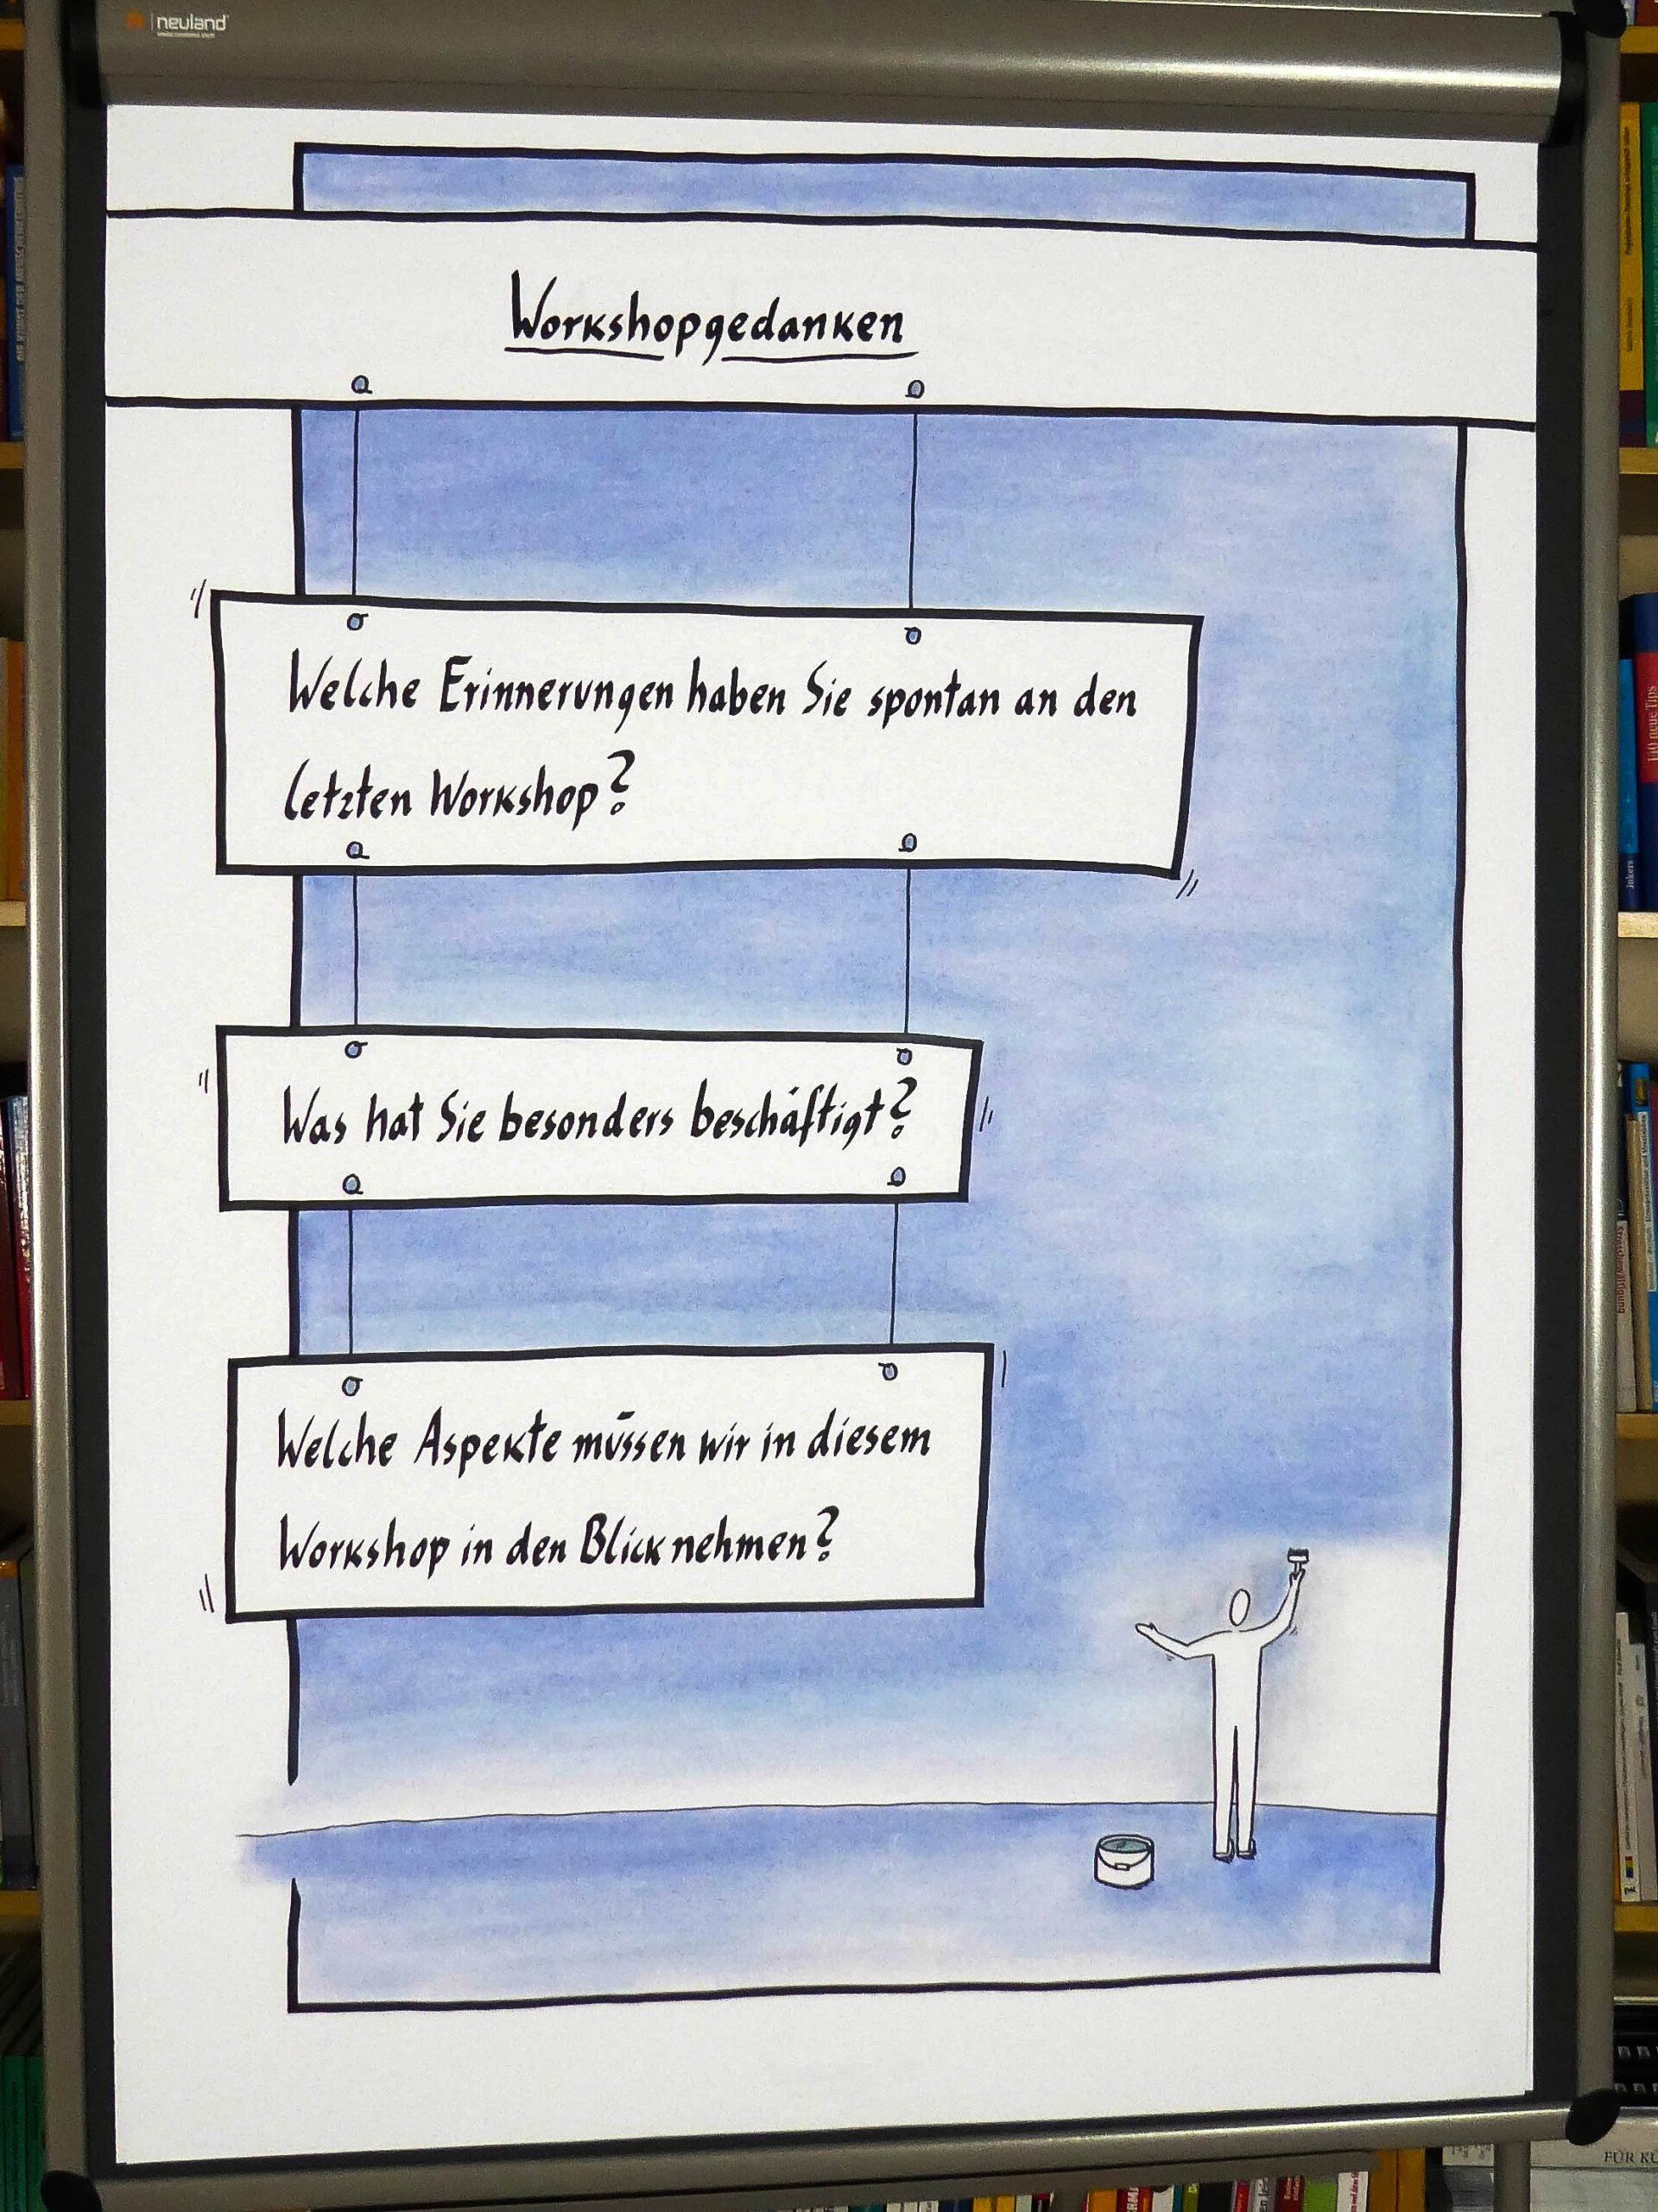 neuland
Workshopgedanken
Welche Erinnerungen haben Sie spontan an den
letzten Workshop?
Was hat Sie besonders beschäftigt?
Welche Aspekte müssen wir in diesem
Workshop in den Blick nehmen?
140 neue Tips
Jokers
FÜR KÜ